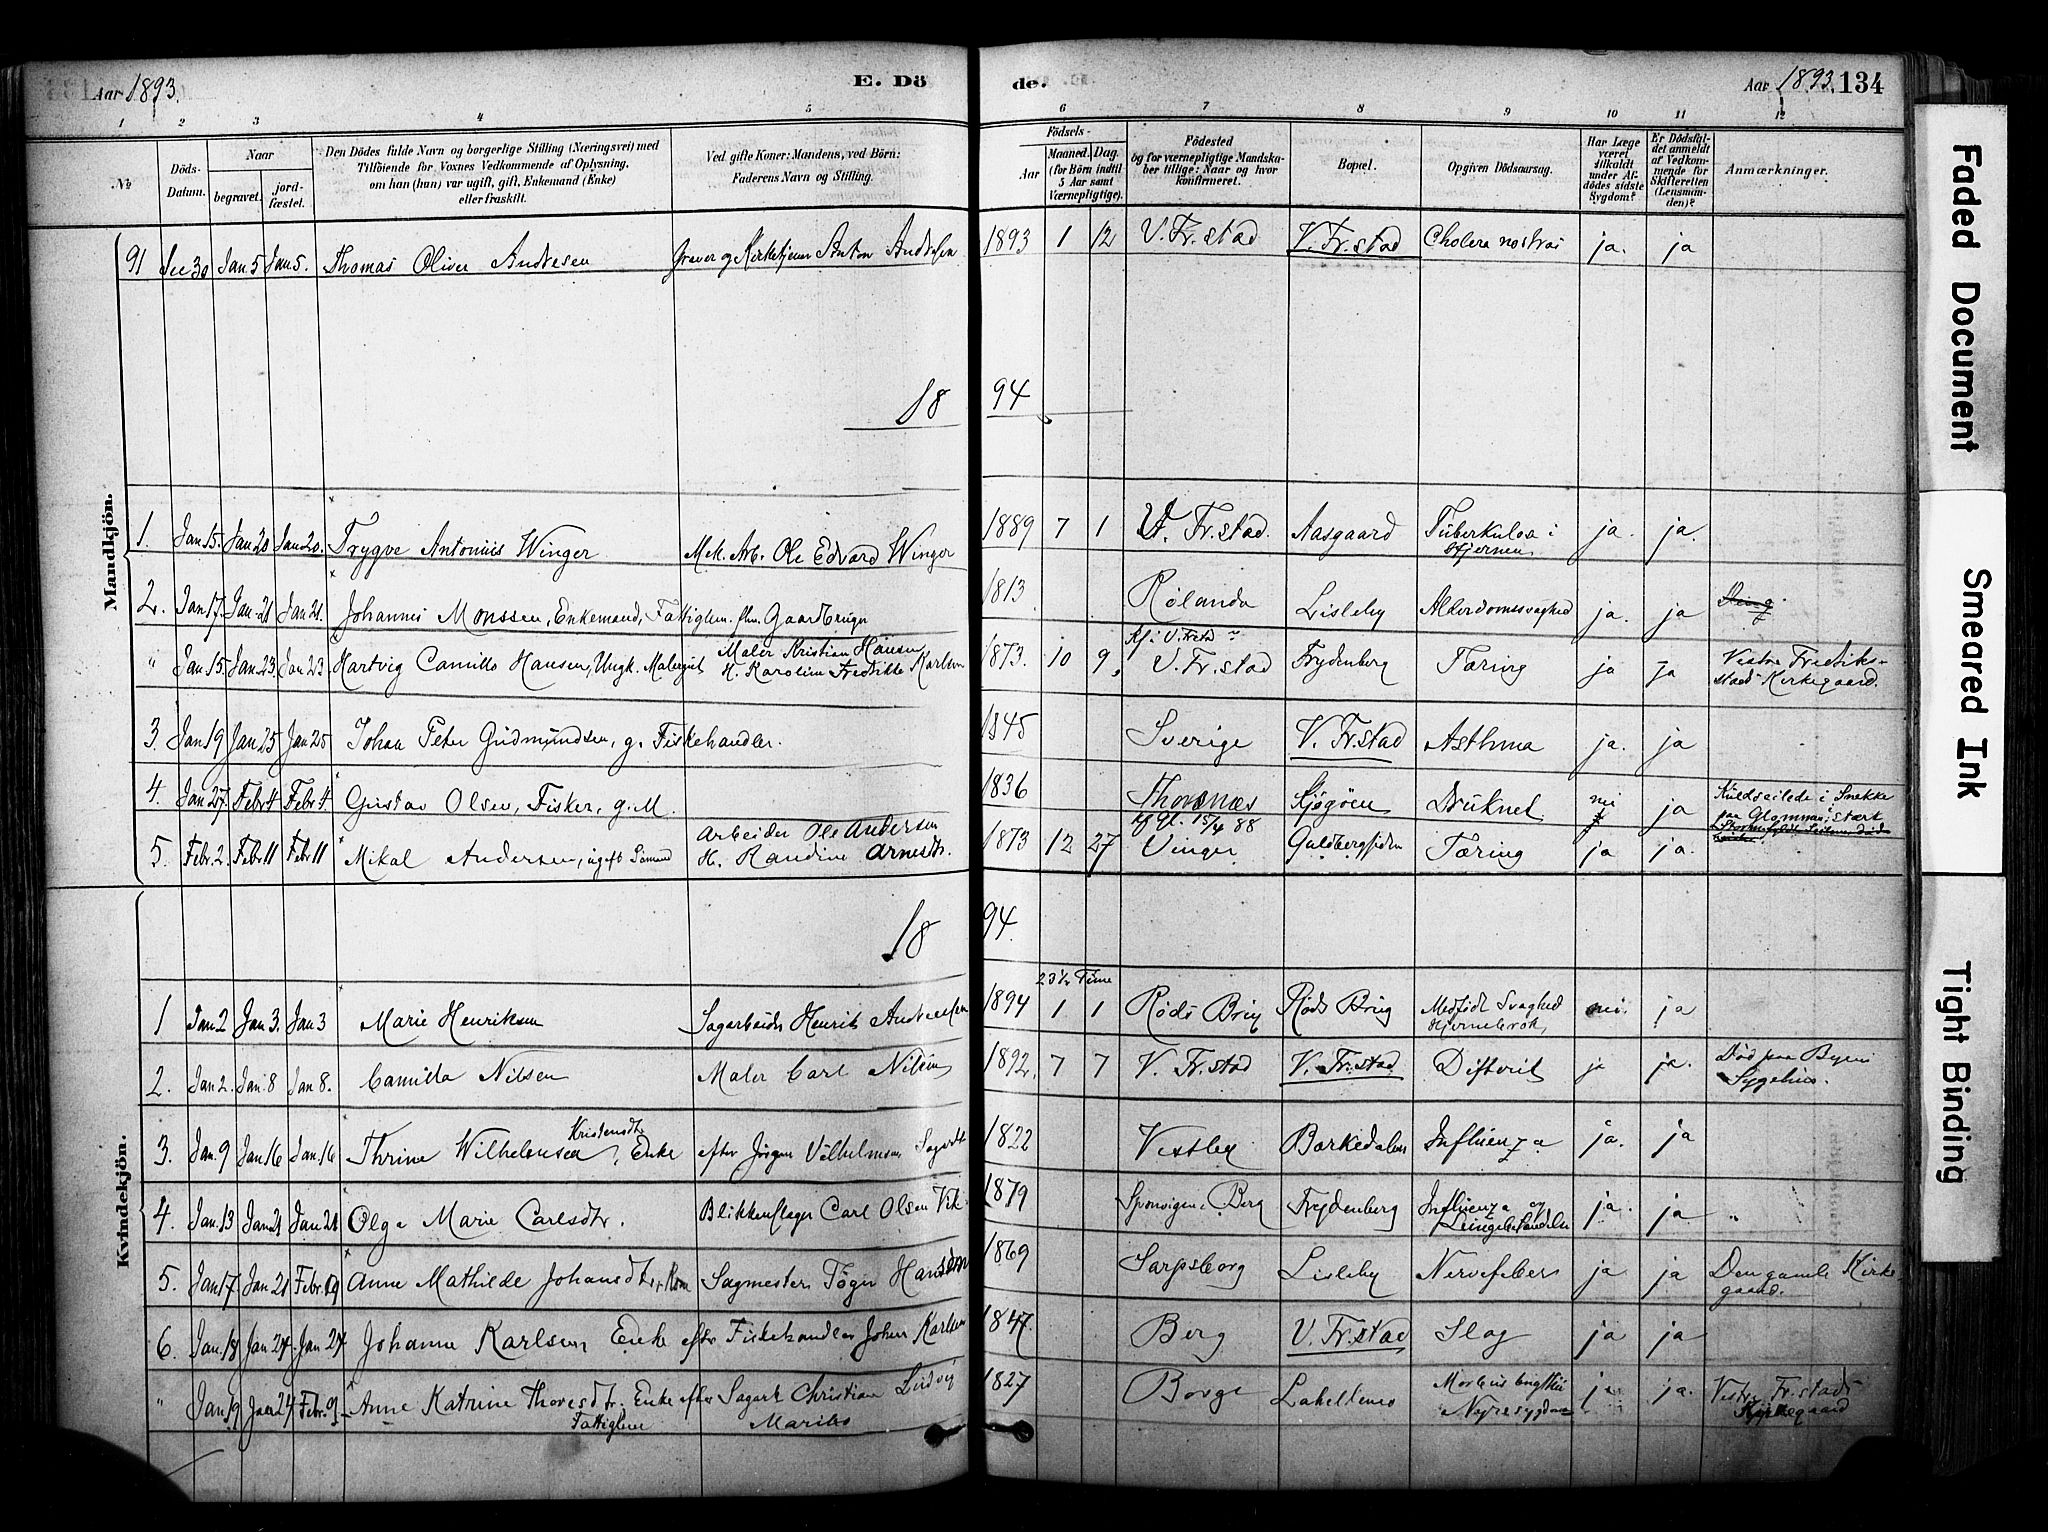 Aar 1893. E. Dö de. Aar 1893. 134
1 2 3 4 5 6 7 8 9 10 11 12
№ Döds-Datum. Naar begravet. jord-fæstet. Den Dödes fulde Navn og borgerlige Stilling (Næringsvei) med Tilföiende for Voxnes Vedkommende af Oplysning, om han (hun) var ugift, gift, Enkemand (Enke) eller fraskilt. Ved gifte Koner: Mandens, ved Börn: Faderens Navn og Stilling. Födsels-Aar Maaned. Dag. (for Börn indtil 5 Aar samt Værnepligtige). Födested og for værnepligtige Mandskaber tillige: Naar og hvor konfirmeret. Bopæl. Opgiven Dödsaarsag. Har Læge været tilkaldt under Afdödes sidste Sygdom? Er Dödsfaldet anmeldt af Vedkommende for Skifteretten (Lensmanden)? Anmærkninger.
Mandkjön.
91 Dec 30 Jan 5 Jan 5. Thomas Oliver Andresen Graver og Kirketjener Anton Andresen 1893 1 12 V. Fr.stad V. Fr.stad Cholera nostras ja. ja
18 94
1. Jan 15. Jan 20 Jan 20. Trygve Antonius Winger Mek. Arb. Ole Edvard Winger 1889 7 1 V. Fr.stad. Aasgaard Tuberkulos i Hjernen ja. ja.
2. Jan 17. Jan 21 Jan 21. Johannes Monssen, Enkemand, Fattiglem. fhv. Gaardbruger 1813 Rölanda Lisleby Alderdomssvaghed ja. ja
Kf. i V. Frstd
" Jan 15. Jan 23. Jan 23 Hartvig Camillo Hansen, Ungk. Malersvd Maler Kristian Hansen H. Karoline Fredrikke Karlsen 1873. 10 9 V. Fr.stad Frydenberg Tæring ja ja Vestre Fredrikstads Kirkegaard.
3. Jan 19 Jan 25 Jan 25 Johan Peter Gudmundsen, g. Fiskehandler. 1845 Sverige V. Fr.stad Asthma ja. ja
4. Jan 27. Febr 4 Febr 4. Gustav Olsen, Fisker, g. M. 1836 Thorsnæs Sjøgöen Druknet nei ja Kuldseilede i Snekke paa Glommen i stærk
5. Febr. 2. Febr 11 Febr 11 Mikal Andersen, ugift Sömand Arbeider Ole Andersen H. Randine Arnesdtr. 1873 12 27 Vinger Guldbergsiden Tæring ja ja.
18 94.
Kvindekjön.
23 1/2 Time
1 Jan 2 Jan 3. Jan 3 Marie Henriksen Sagarbeider Henrik Andreassen 1894 1 1 Röds Brug Röds Brug Medfödt Svaghed Hjernebrok nei. ja
2. Jan 2. Jan 8 Jan 8. Camilla Nilsen Maler Carl Nilsen 1892. 7 7 V. Fr.stad V. Fr.stad Difterit ja ja. Död paa Byens Sygehus.
3. Jan. 9 Jan 16 Jan. 16 Thrine Wilhelmsen Kristensdtr., Enke efter Jörgen Vilhelmsen 1822 Vestby Barkedalen Influenza ja. ja
4. Jan. 13 Jan 21 Jan 21 Olga Marie Carlsdtr. Blikkenslager Carl Olsen Vik 1879 Berg Frydenberg Influenza og Lungebetændelse ja. ja "
5. Jan 17 Jan 21 Febr. 19 Anne Mathilde Johansdtr. Kone Sagmester Tögir Hansen 1869 Sarpsborg Lisleby Nervefeber ja ja Den gamle Kirkegaard.
6. Jan. 18 Jan 27. Jan 27 Johanne Karlsen Enke eftr Fiskehandler Johan Karlsen 1847. Berg V. Fr.stad Slag ja ja
" Jan 19 Jan 24 Febr. 9. Anne Katrine Thoresdtr. Enke efter Sagarb. Christian Ludvig Fattiglem 1827 Borge Lahellemo Morbus brightii Nyresygdom ja ja. Vestre Fr.stads Kirkegaard
Faded Document
Smeared Ink
Tight Binding